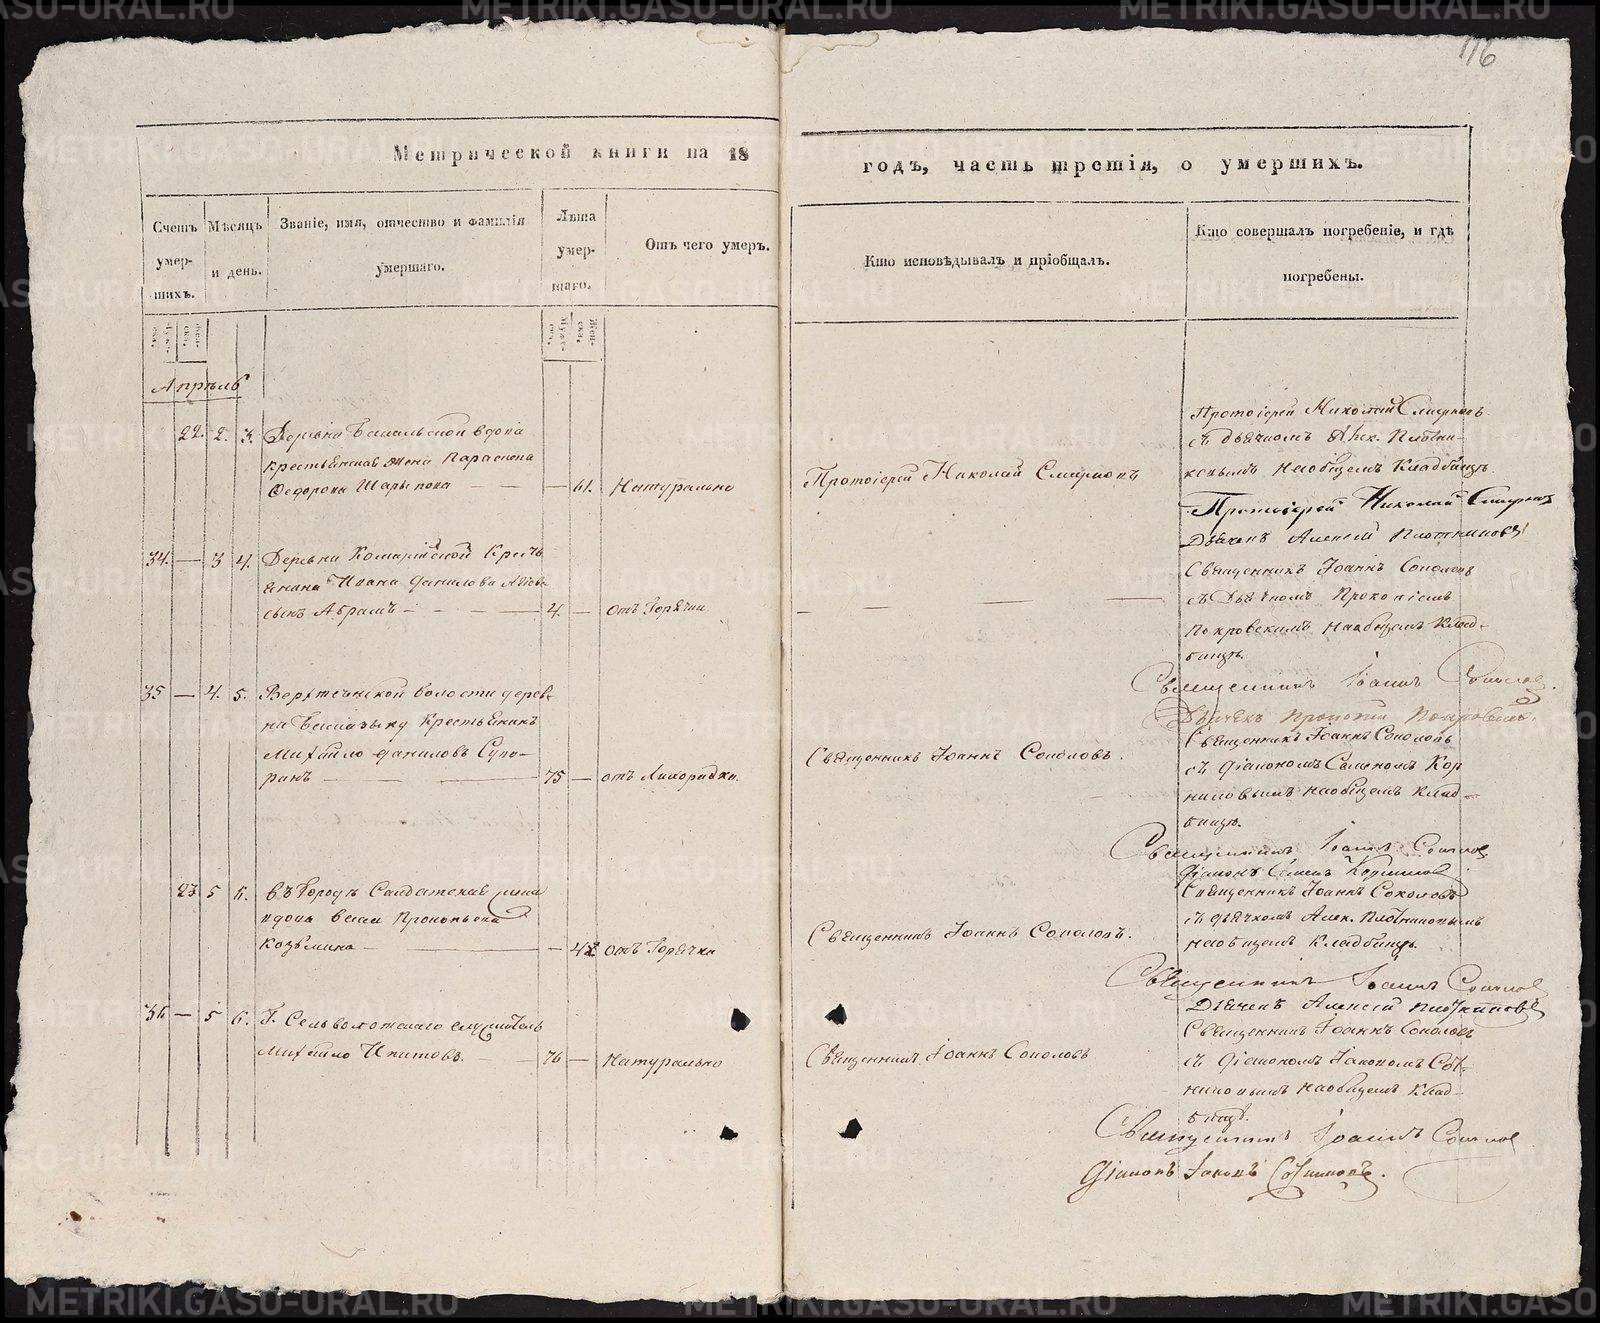 METRIKI.GASO-URAL.RU
116
Метрической книги на 18 годъ, часть третія, о умершихъ.
Счетъ умер-шихъ.
Мѣсяцъ и день.
Званіе, имя, отчество и фамилія умершаго.
Лѣта умер-шаго.
Отъ чего умеръ.
Кто исповѣдывалъ и пріобщалъ.
Кто совершалъ погребеніе, и гдѣ погребены.
Апрѣль
22. 2. 3. Деревни вдова
крестьянская жена Параскева
Федорова Шарыпова — 61. Натурально
Протоіерей Николай Смирновъ
Протоіерей Николай Смирновъ
съ дьячкомъ Алек. Плотни-
ковымъ на общемъ кладбищѣ
Протоіерей Николай Смирновъ
Дьячекъ Алексѣй Плотниковъ
34. — 3 4. Деревни Кресть
янина Ивана Данилова
сынъ Абрамъ — 4. — отъ Горячки
Священникъ Іоаннъ Соколовъ
съ Дьячкомъ Прокопіемъ
Покровскимъ на общемъ клад-
бищѣ.
Священникъ Іоаннъ Соколовъ.
Дьячекъ Прокопій Покровскій.
35 — 4. 5. волости дерев-
ни крестьянинъ
Михайло Даниловъ
75 — отъ Лихорадки.
Священникъ Іоаннъ Соколовъ.
Священникъ Іоаннъ Соколовъ
съ діакономъ Семеномъ Кор
ниловымъ на общемъ клад-
бищѣ.
Священникъ Іоаннъ Соколовъ
Діаконъ Семенъ Корниловъ
23 5 6. въ Городѣ Салдатская жена
вдова Прокопьева
Козьмина — отъ Горячки
Священникъ Іоаннъ Соколовъ.
Священникъ Іоаннъ Соколовъ
съ дьячкомъ Алек. Плотниковымъ
на общемъ кладбищѣ.
Священникъ Іоаннъ Соколовъ
Дьячекъ Алексѣй Плотниковъ
36 — 5 6. Г. служитель
Михайло Никитовъ. — 76 — Натурально
Священникъ Іоаннъ Соколовъ
Священникъ Іоаннъ Соколовъ
съ діакономъ Іаковомъ
на общемъ клад-
бищѣ.
Священникъ Іоаннъ Соколовъ
Діаконъ Іаковъ